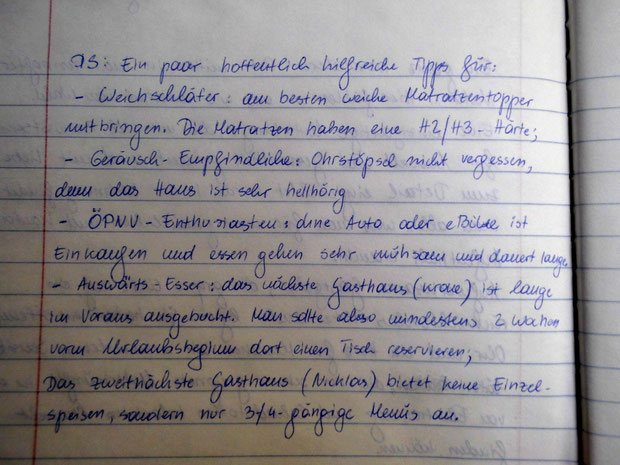 PS: Ein paar hoffentlich hilfreiche Tipps für:
- Weichschläfer: am besten weiche Matratzentopper
mitbringen. Die Matratzen haben eine H2/H3-Härte;
- Geräusch-Empfindliche: Ohrstöpsel nicht vergessen,
denn das Haus ist sehr hellhörig
- ÖPNV-Enthusiasten: ohne Auto oder eBike ist
Einkaufen und essen gehen sehr mühsam und dauert lange,
- Auswärts-Esser: das nächste Gasthaus (Krone) ist lange
im Voraus ausgebucht. Man sollte also mindestens 2 Wochen
vorm Urlaubsbeginn dort einen Tisch reservieren;
Das zweitnächste Gasthaus (Nicklas) bietet keine Einzel-
speisen, sondern nur 3/4-gängige Menüs an.